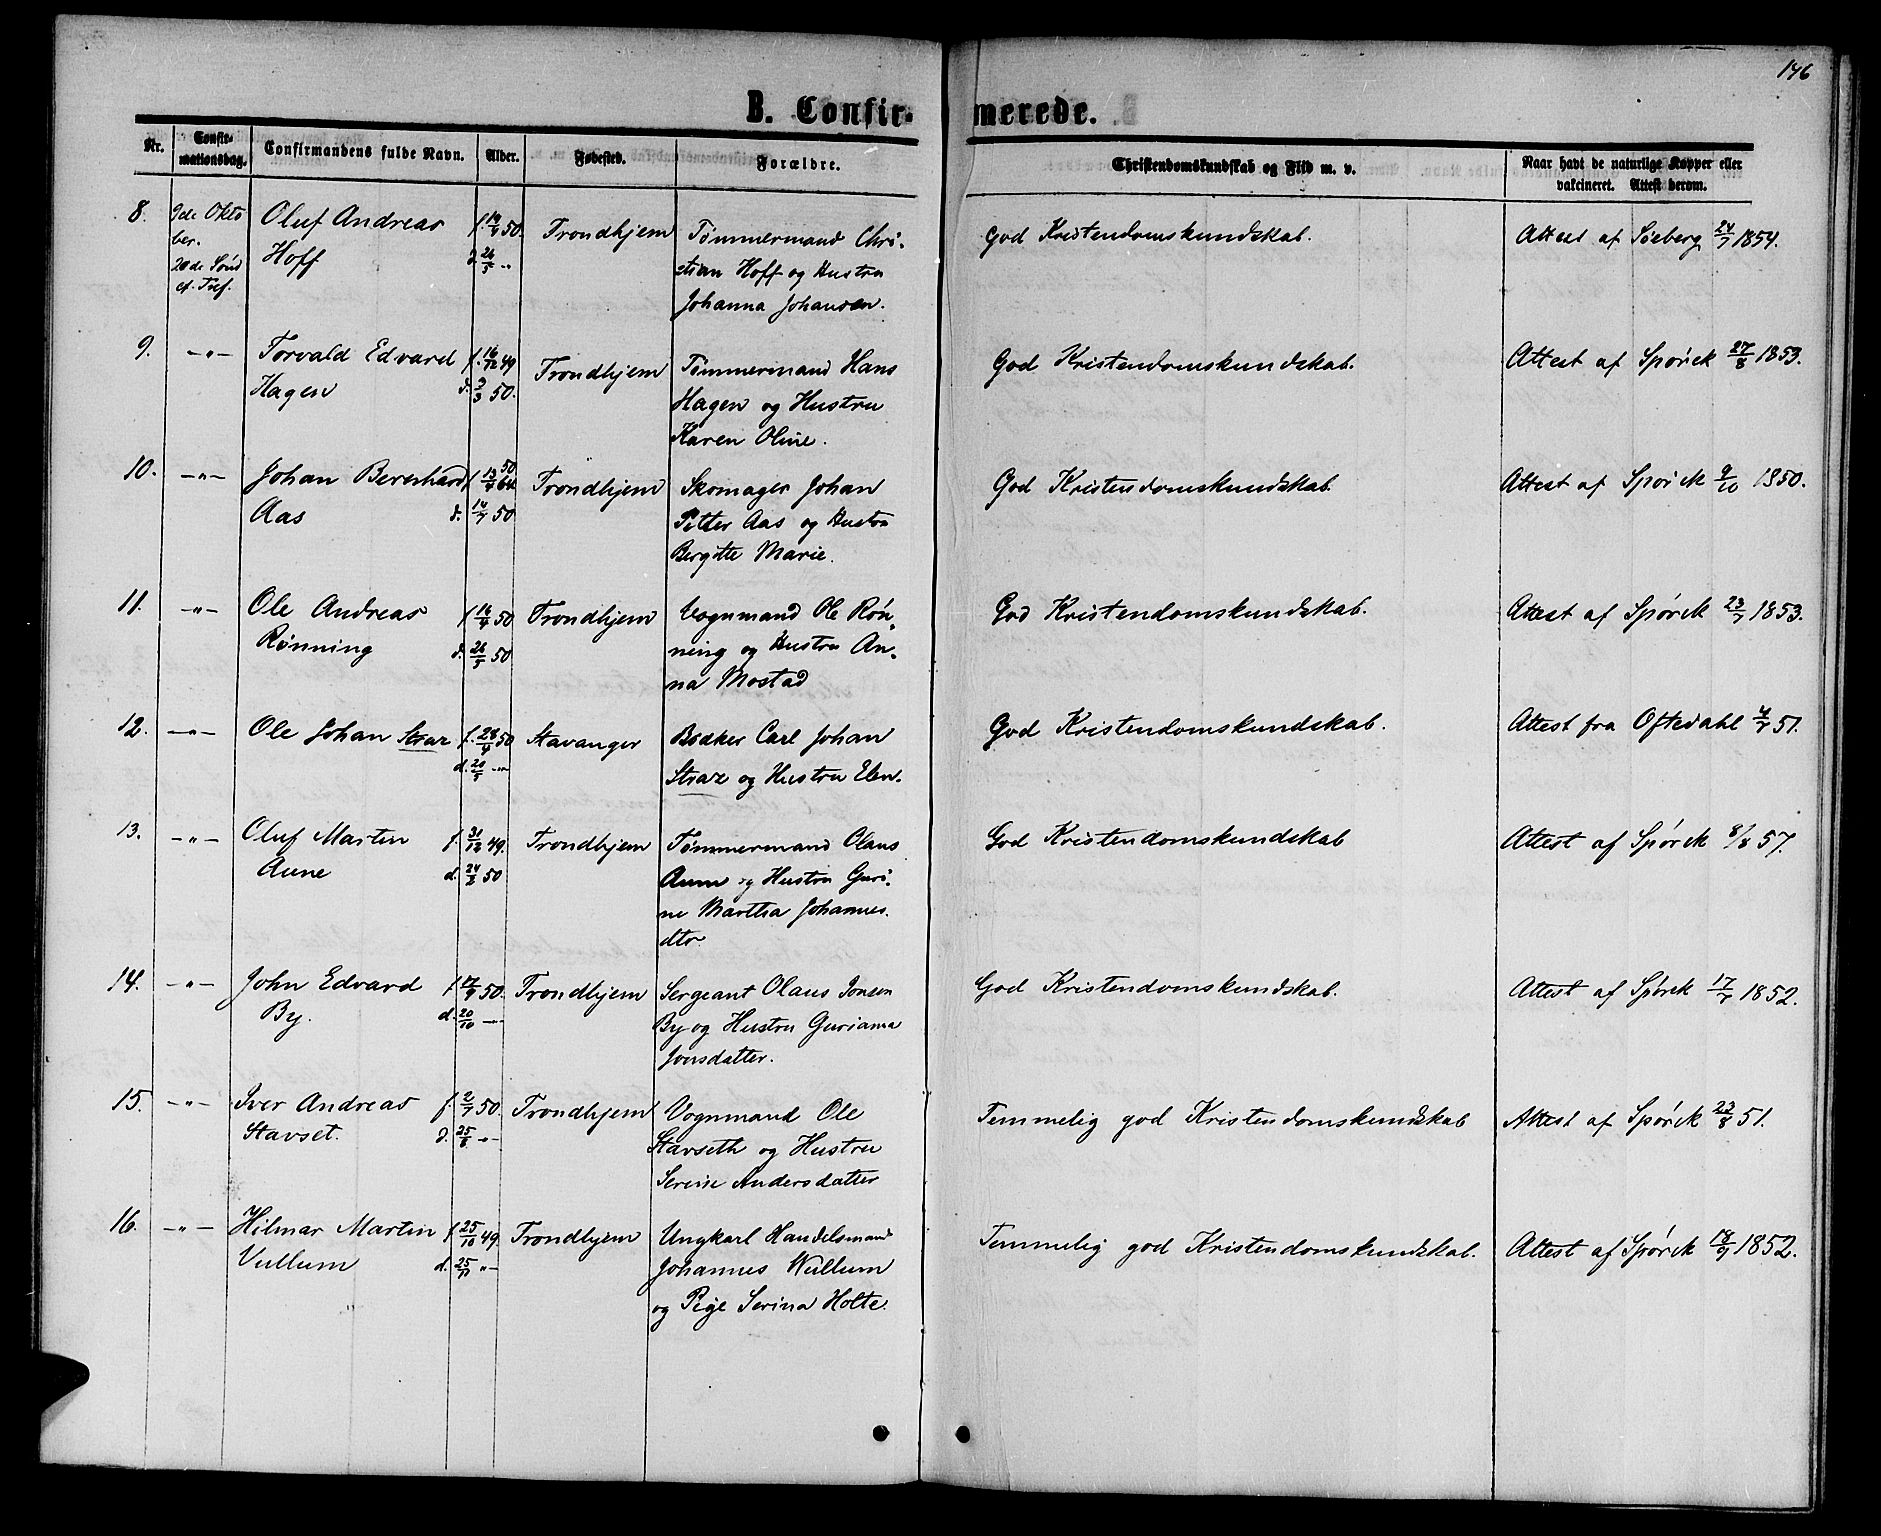 146
B. Confir- merede.
Nr. Confir-mationsdag. Confirmandens fulde Navn. Alder. Fødested. Forældre. Christendomskundskab og Flid m. v. Naar havt de naturlige Kopper eller vakcineret. Attest derom.
8. 9de Okto Oluf Andreas f. 14/4 50. Trondhjem Tømmermand Chri- God Kristendomskundskab. Attest af Søeberg 24/7 1854.
ber. Hoff d. 26/5 -"- stian Hoff og Hustru
20de Sønd Johanna Johansen.
ef. Tref.
9. -"- Torvald Edvard f. 16/12 49 Trondhjem Tømmermand Hans God Kristendomskundskab. Attest af Spørck 27/8 1853.
Hagen d. 3/3 50. Hagen og Hustru
Karen Oline.
10. -"- Johan Bernhard f. 13/4 50 Trondhjem Skomager Johan God Kristendomskundskab. Attest af Spørck 9/10 1850.
Aas d. 14/7 50 Petter Aas og Hustru
Bergitte Marie.
11. -"- Ole Andreas f. 16/4 50 Trondhjem Vognmand Ole Røn- God Kristendomskundskab. Attest af Spørck 23/7 1853.
Rønning d. 26/5 50 ning og Hustru An-
na Mostad
12. -"- Ole Johan Straz f. 28/4 50 Stavanger Bødker Carl Johan God Kristendomskundskab. Attest fra Oftedahl 4/7 51.
d. 20/5 -"- Straz og Hustru Elen.
13. -"- Oluf Martin f. 31/12 49. Trondhjem Tømmermand Olaus God Kristendomskundskab Attest af Spørck 8/8 57.
Aune d. 24/2 50 Aune og Hustru Guri-
ne Martha Johannes.
dtr.
14. -"- John Edvard f. 17/9 50. Trondhjem Sergeant Olaus Jonsen God Kristendomskundskab. Attest af Spørck 17/7 1852.
By. d. 20/10 -"- By og Hustru Guriana
Jonsdatter.
15. -"- Iver Andreas f. 2/7 50. Trondhjem Vognmand Ole Temmelig god Kristendomskundskab Attest af Spørck 23/8 51.
Stavset. d. 25/8 -"- Stavseth og Hustru
Serine Andersdatter
16. -"- Hilmar Martin f. 25/10 49. Trondhjem Ungkarl Handelsmand Temmelig god Kristendomskundskab. Attest af Spørck 18/9 1852.
Vullum d. 25/11 -"- Johannes Wullum
og Pige Serina Holte.